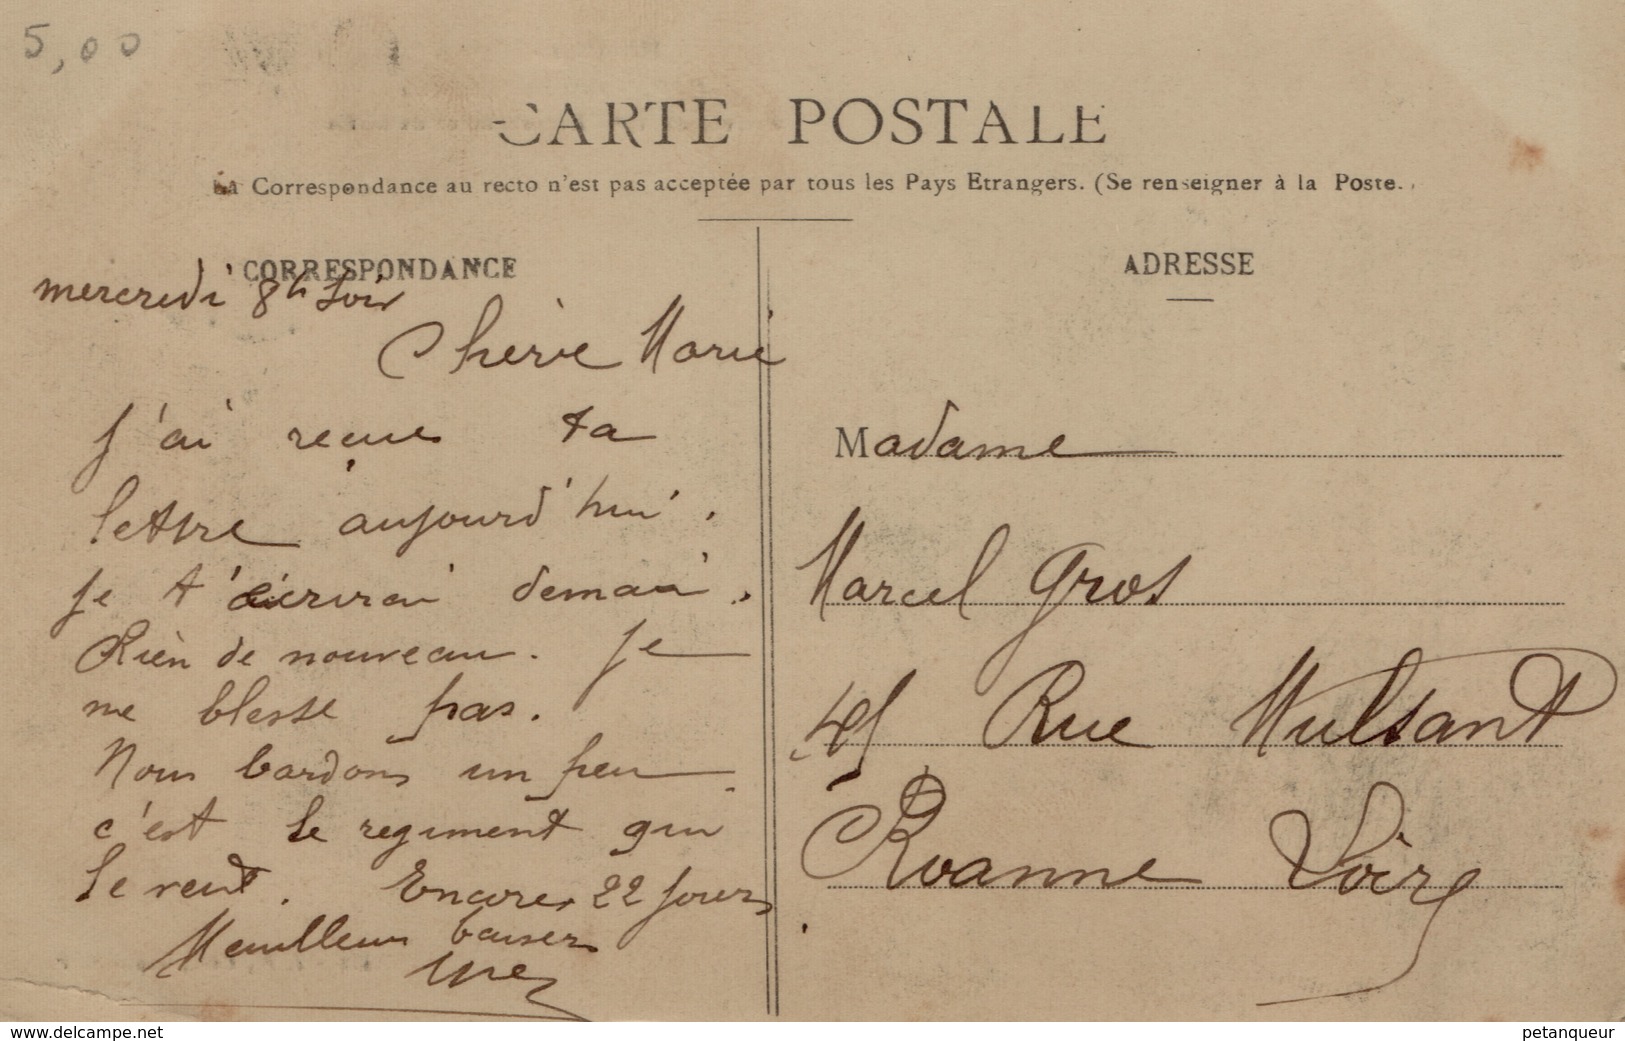 5,00
CARTE POSTALE
La Correspondance au recto n'est pas acceptée par tous les Pays Etrangers. (Se renseigner à la Poste.
CORRESPONDANCE
mercredi 8h soir
Chère Marie
J'ai reçue ta
lettre aujourd'hui.
Je t'écrirai demain.
Rien de nouveau. Je
me blesse pas.
Nous bardons un peu
c'est le regiment qui
le veut. Encore 22 jours
Meuilleurs baisers
ADRESSE
Madame
Marcel Gros
45 Rue Mulsant
Roanne Loire
www.delcampe.net
petanqueur